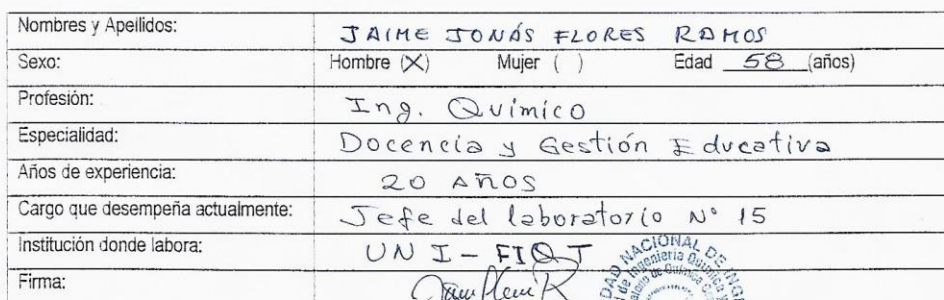 Nombres y Apellidos: JAIME JONÁS FLORES RAMOS
Sexo: Hombre (X) Mujer ( ) Edad 58 (años)
Profesión: Ing. Químico
Especialidad: Docencia y Gestión Educativa
Años de experiencia: 20 AÑOS
Cargo que desempeña actualmente: Jefe del laboratorio N° 15
Institución donde labora: UNI-FIQT
Firma: